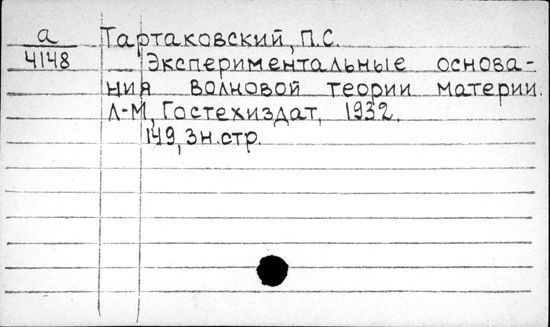 а
4148
Тартаковский, П.С.
Экспериментальные основа-
ния волновой теории материи.
Л-М, Гостехиздат, 1932.
149, 3н.стр.